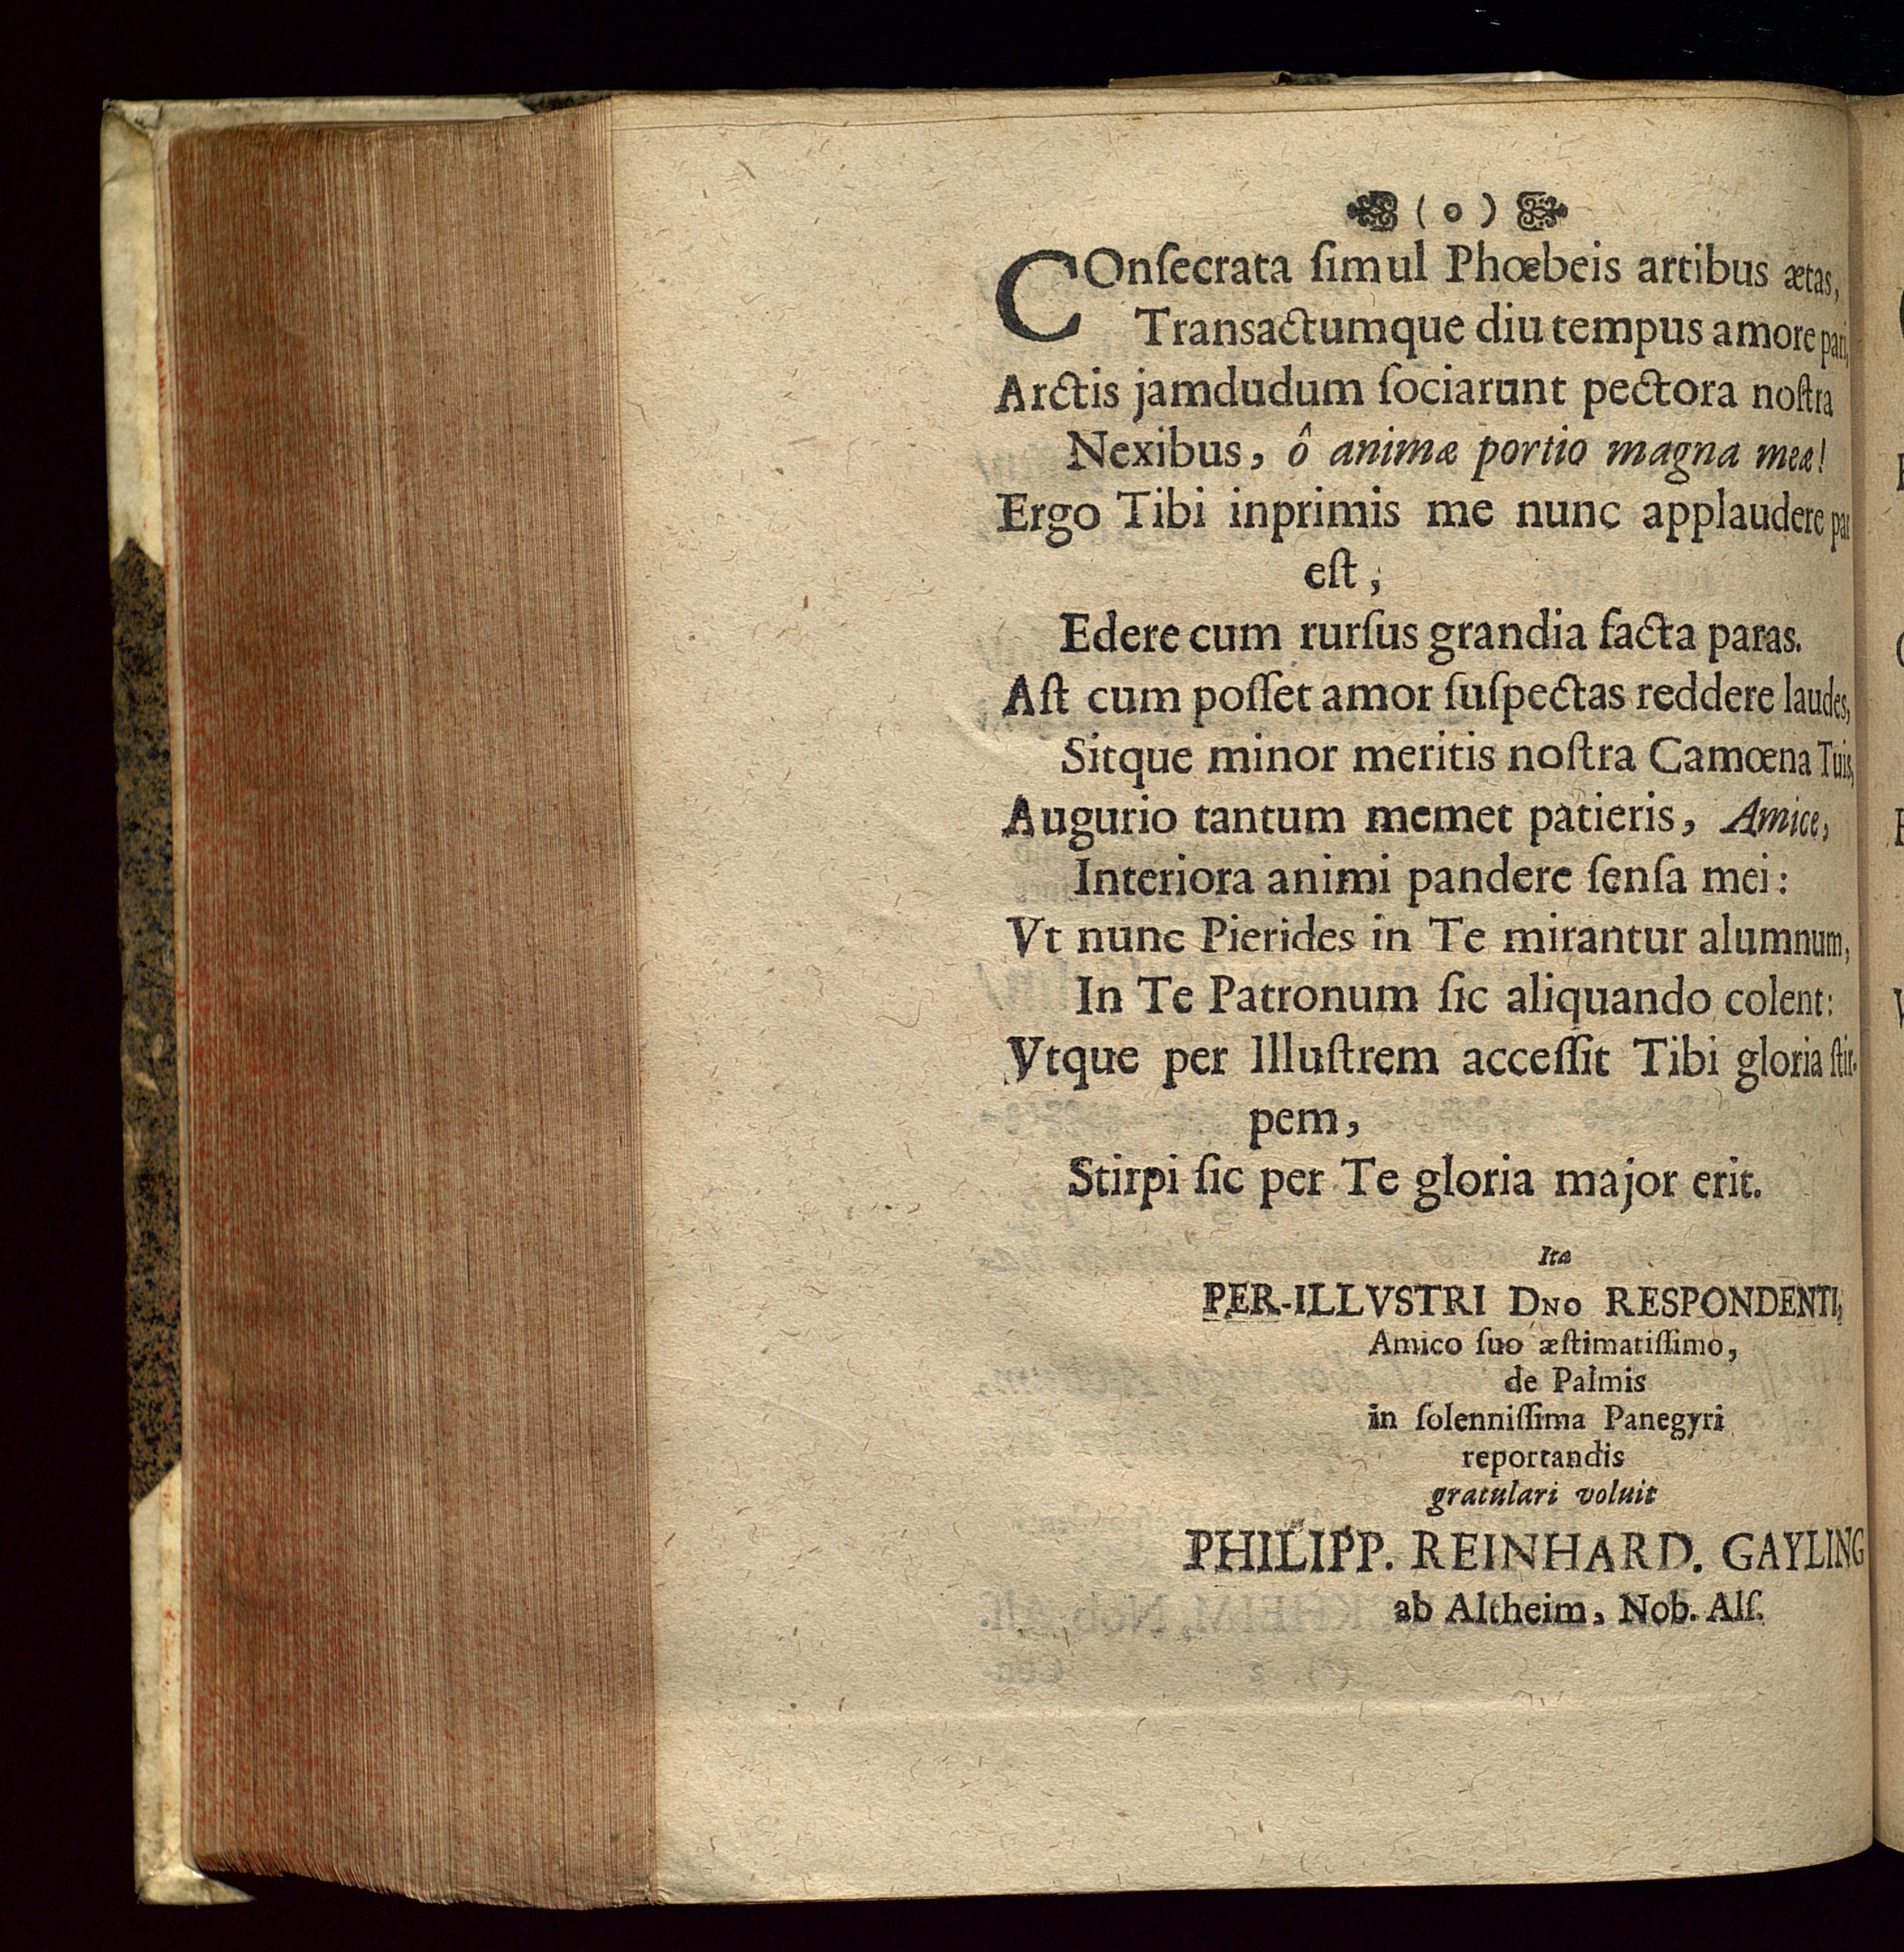 ( o )
COnſecrata ſimul Phœbeis artibus ætas,
Transactumque diu tempus amore pari,
Arctis jamdudum ſociarunt pectora noſtra
Nexibus, ô animæ portio magna meæ!
Ergo Tibi inprimis me nunc applaudere par
eſt,
Edere cum rurſus grandia facta paras.
Aſt cum poſſet amor ſuſpectas reddere laudes,
Sitque minor meritis noſtra Camœna Tuis,
Augurio tantum memet patieris, Amice,
Interiora animi pandere ſenſa mei:
Vt nunc Pierides in Te mirantur alumnum,
In Te Patronum ſic aliquando colent:
Vtque per Illuſtrem acceſſit Tibi gloria ſtir-
pem,
Stirpi ſic per Te gloria major erit.
Ita
PER-ILLVSTRI DNO RESPONDENTI,
Amico ſuo æſtimatiſſimo,
de Palmis
in ſolenniſſima Panegyri
reportandis
gratulari voluit
PHILIPP. REINHARD. GAYLING
ab Altheim, Nob. Alſ.